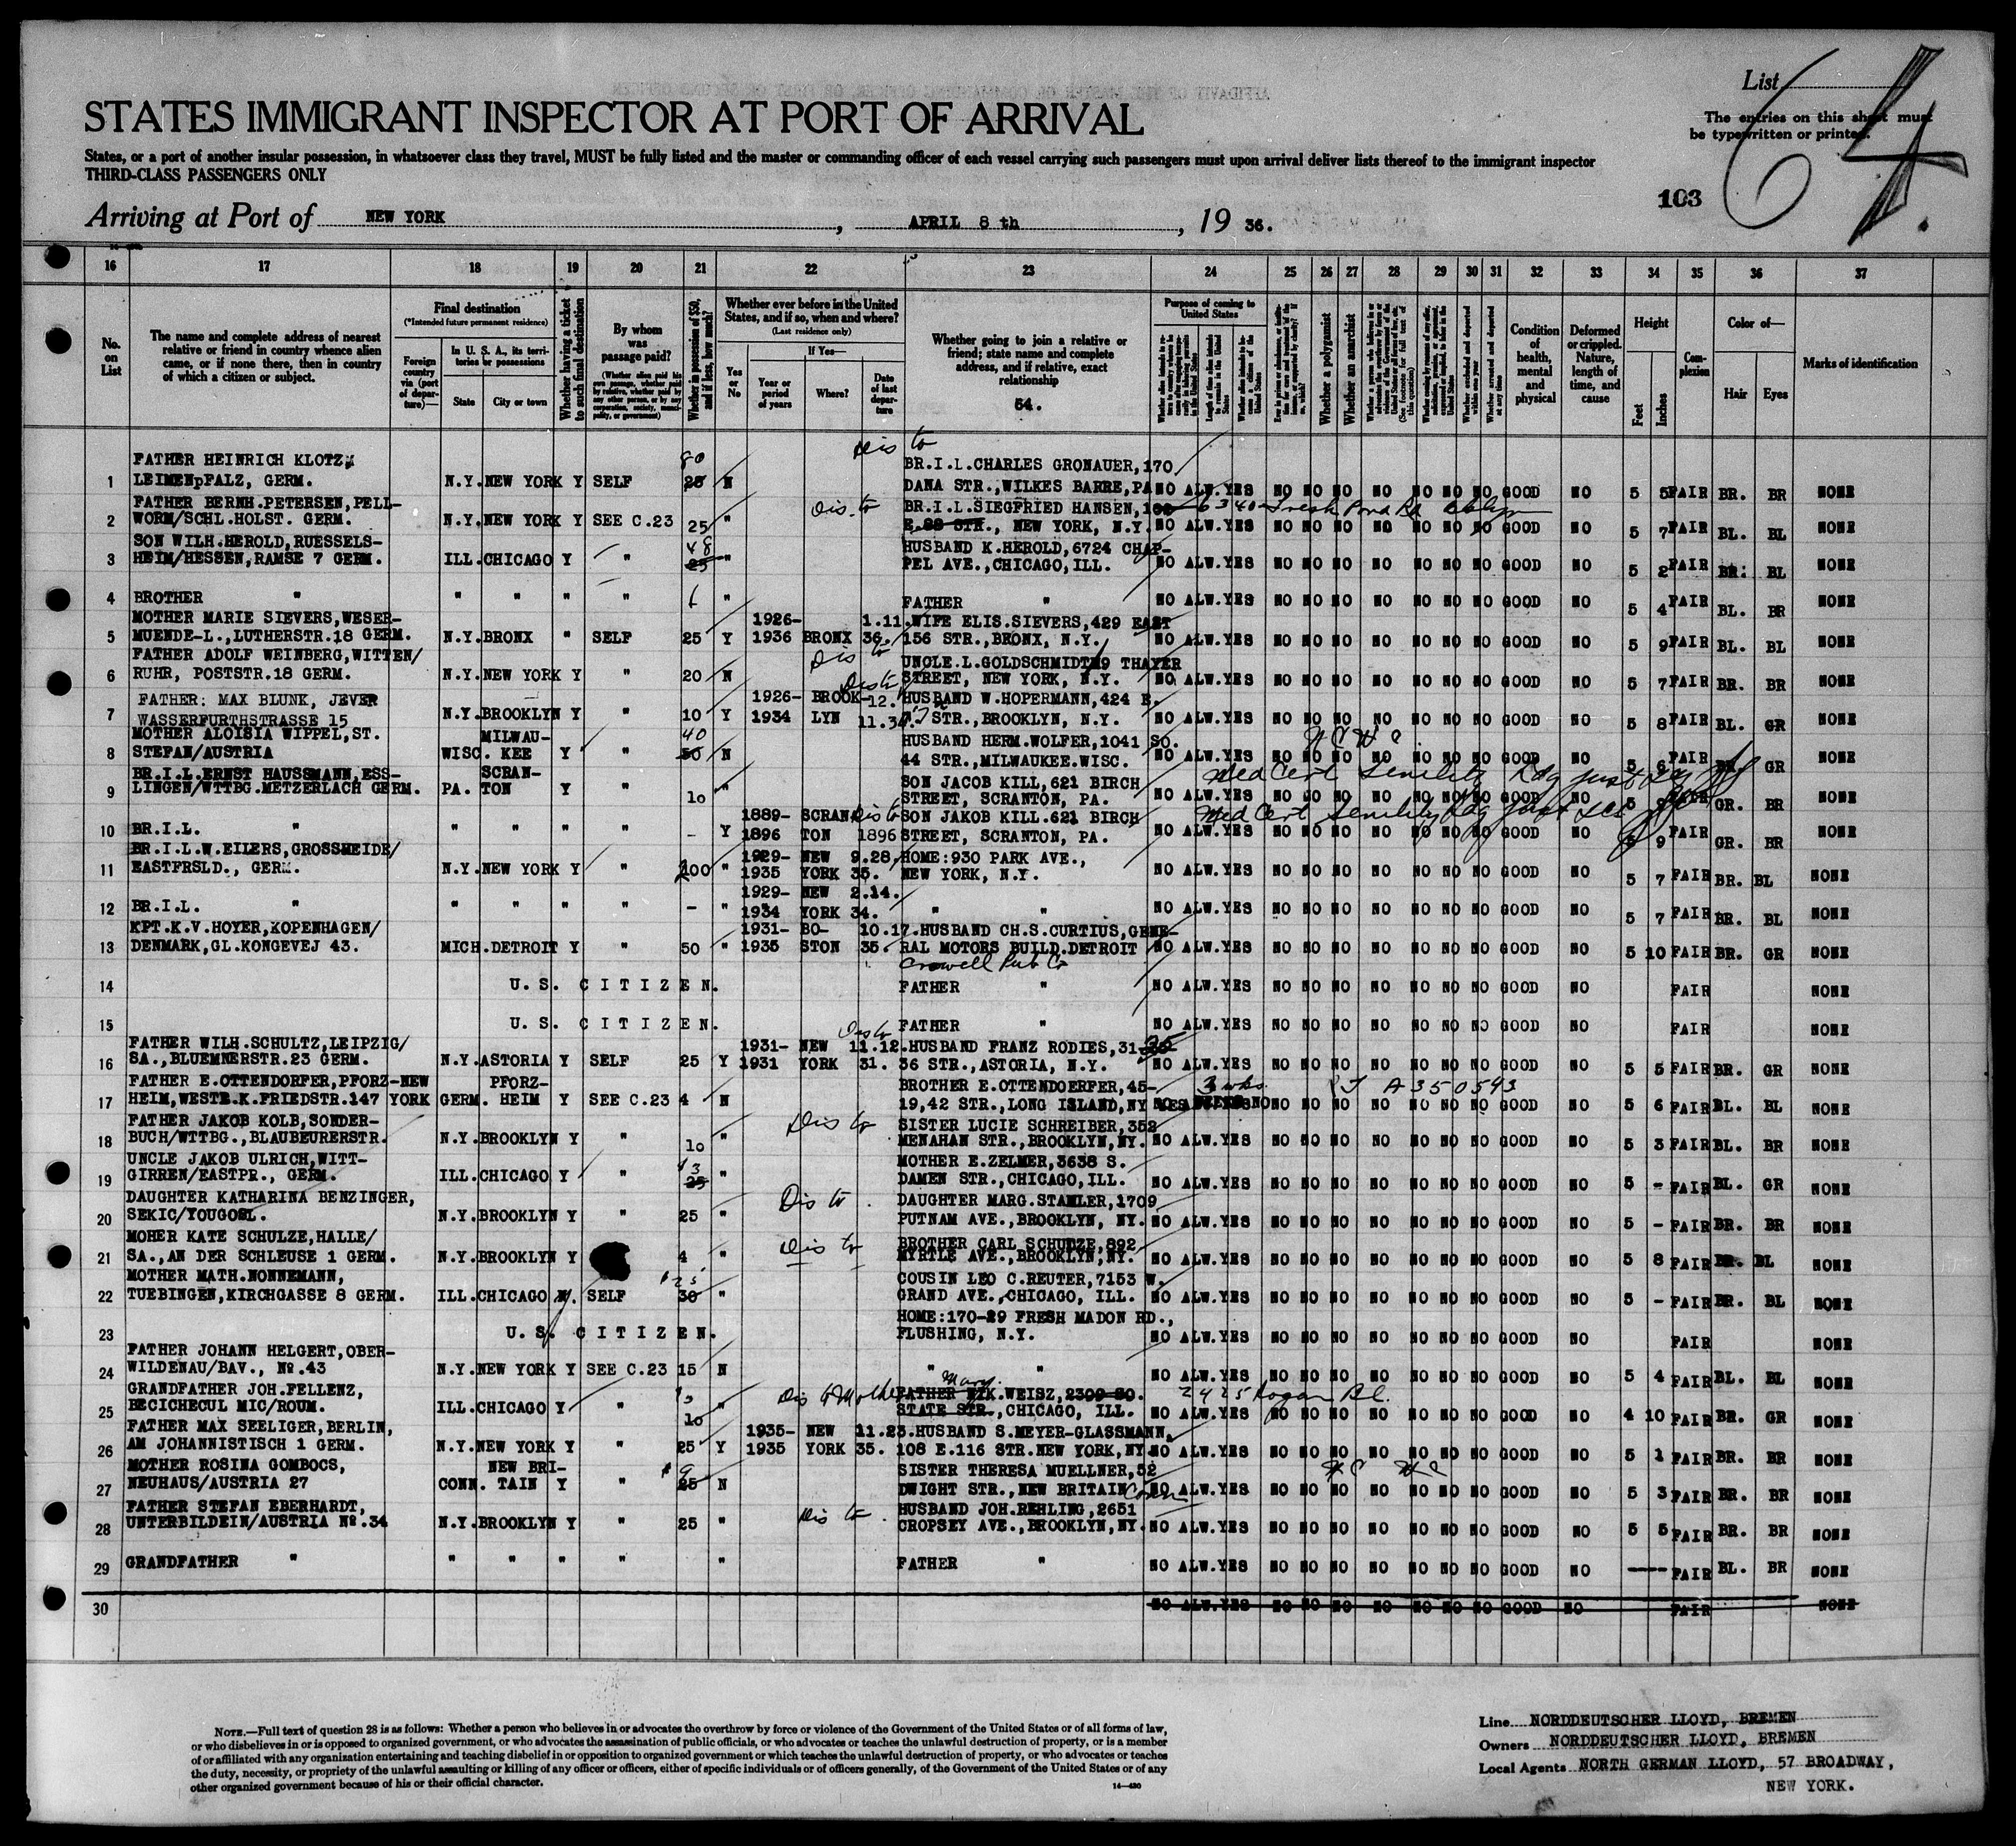 List 64.
STATES IMMIGRANT INSPECTOR AT PORT OF ARRIVAL
The entries on this sheet must
be typewritten or printed.
States, or a port of another insular possession, in whatsoever class they travel, MUST be fully listed and the master or commanding officer of each vessel carrying such passengers must upon arrival deliver lists thereof to the immigrant inspector
THIRD-CLASS PASSENGERS ONLY
103
Arriving at Port of NEW YORK, APRIL 8 th, 19 36.
16 17 18 19 20 21 22 23 24 25 26 27 28 29 30 31 32 33 34 35 36 37
No. on List
The name and complete address of nearest relative or friend in country whence alien came, or if none there, then in country of which a citizen or subject.
Final destination
(*Intended future permanent residence)
Foreign country via (port of departure)—
In U. S. A., its territories or possessions
State
City or town
Whether having a ticket to such final destination
By whom was passage paid?
(Whether alien paid his own passage, whether paid by relative, whether paid by any other person, or by any corporation, society, municipality, or government)
Whether in possession of $50, and if less, how much?
Whether ever before in the United States, and if so, when and where?
(Last residence only)
Yes or No
If Yes—
Year or period of years
Where?
Date of last departure
Whether going to join a relative or friend; state name and complete address, and if relative, exact relationship
54.
Purpose of coming to United States
Whether a polygamist
Whether an anarchist
Condition of health, mental and physical
Deformed or crippled. Nature, length of time, and cause
Height
Feet
Inches
Complexion
Color of—
Hair
Eyes
Marks of identification
1 FATHER HEINRICH KLOTZ, LEIMENpFALZ, GERM. N.Y. NEW YORK Y SELF 80 25 N Dis to BR.I.L.CHARLES GRONAUER,170 DANA STR.,WILKES BARRE,PA NO ALW.YES NO NO NO NO NO NO NO GOOD NO 5 5 FAIR BR. BR NONE
2 FATHER BERNH.PETERSEN,PELL-WORM/SCHL.HOLST. GERM. N.Y. NEW YORK Y SEE C.23 25 " Dis. to BR.I.L.SIEGFRIED HANSEN, E.88 STR., NEW YORK, N.Y. 6340 Fresh Pond Rd NO ALW.YES NO NO NO NO NO NO NO GOOD NO 5 7 FAIR BL. BL NONE
3 SON WILH.HEROLD,RUESSELS-HEIM/HESSEN,RAMSE 7 GERM. ILL. CHICAGO Y " 48 25 " HUSBAND K.HEROLD,6724 CHAP-PEL AVE.,CHICAGO,ILL. NO ALW.YES NO NO NO NO NO NO NO GOOD NO 5 2 FAIR BR. BL NONE
4 BROTHER " " " " " " FATHER " NO ALW.YES NO NO NO NO NO NO NO GOOD NO 5 4 FAIR BL. BR NONE
5 MOTHER MARIE SIEVERS,WESER-MUENDE-L.,LUTHERSTR.18 GERM. N.Y. BRONX " SELF 25 Y 1926-1936 BRONX 1.11.36. WIFE ELIS.SIEVERS,429 EAST 156 STR.,BRONX, N.Y. NO ALW.YES NO NO NO NO NO NO NO GOOD NO 5 9 FAIR BL. BL NONE
6 FATHER ADOLF WEINBERG,WITTEN/RUHR, POSTSTR.18 GERM. N.Y. NEW YORK Y " 20 N Dis to UNCLE.L.GOLDSCHMIDT,19 THAYER STREET, NEW YORK, N.Y. NO ALW.YES NO NO NO NO NO NO NO GOOD NO 5 7 FAIR BR. BR NONE
7 FATHER: MAX BLUNK, JEVER WASSERFURTHSTRASSE 15 N.Y. BROOKLYN Y " 10 Y 1926-1934 BROOK-LYN 12.11.34. Dis to HUSBAND W.HOPERMANN,424 E. STR.,BROOKLYN, N.Y. NO ALW.YES NO NO NO NO NO NO NO GOOD NO 5 8 FAIR BL. GR NONE
8 MOTHER ALOISIA WIPPEL,ST. STEFAN/AUSTRIA WISC. MILWAU-KEE Y " 40 50 N HUSBAND HERM.WOLFER,1041 SO. 44 STR.,MILWAUKEE.WISC. NO ALW.YES NO NO NO NO NO NO NO GOOD NO 5 6 FAIR GR NONE
9 BR.I.L.ERNST HAUSSMANN,ESS-LINGEN/WTTBG.METZERLACH GERM. PA. SCRAN-TON Y " 10 " SON JACOB KILL,621 BIRCH STREET, SCRANTON, PA. Med Cert Senility NO ALW.YES NO NO NO NO NO NO NO GOOD NO 5 GR. BR NONE
10 BR.I.L. " " " " " - Y 1889-1896 SCRAN TON 1896 Dis to SON JAKOB KILL.621 BIRCH STREET, SCRANTON, PA. Med Cert Senility NO ALW.YES NO NO NO NO NO NO NO GOOD NO 5 9 FAIR GR. BR NONE
11 BR.I.L.W.EILERS,GROSSHEIDE/EASTFRSLD., GERM. N.Y. NEW YORK Y " 200 " 1929-1935 NEW YORK 9.28.35. HOME:930 PARK AVE., NEW YORK, N.Y. NO ALW.YES NO NO NO NO NO NO NO GOOD NO 5 7 FAIR BR. BL NONE
12 BR.I.L. " " " " " - " 1929-1934 NEW YORK 2.14.34. " " NO ALW.YES NO NO NO NO NO NO NO GOOD NO 5 7 FAIR BR. BL NONE
13 KPT.K.V.HOYER,KOPENHAGEN/DENMARK,GL.KONGEVEJ 43. MICH. DETROIT Y " 50 " 1931-1935 BO-STON 10.17.35. HUSBAND CH.S.CURTIUS,GENE-RAL MOTORS BUILD.DETROIT Crowell Pub Co NO ALW.YES NO NO NO NO NO NO NO GOOD NO 5 10 FAIR BR. GR NONE
14 U.S. CITIZEN. FATHER " NO ALW.YES NO NO NO NO NO NO NO GOOD NO FAIR NONE
15 U.S. CITIZEN. FATHER " NO ALW.YES NO NO NO NO NO NO NO GOOD NO FAIR NONE
16 FATHER WILH.SCHULTZ,LEIPZIG/SA.,BLUEMNERSTR.23 GERM. N.Y. ASTORIA Y SELF 25 Y 1931-1931 NEW YORK 11.12.31. Dis to HUSBAND FRANZ RODIES,31- 36 STR.,ASTORIA, N.Y. NO ALW.YES NO NO NO NO NO NO NO GOOD NO 5 5 FAIR BR. GR NONE
17 FATHER E.OTTENDORFER,PFORZ-HEIM,WESTL.K.FRIEDSTR.147 NEW YORK GERM. PFORZ-HEIM Y SEE C.23 4 N BROTHER E.OTTENDOERFER,45-19,42 STR.,LONG ISLAND,NY YES 3 wks. NO A350593 NO NO NO NO NO NO NO GOOD NO 5 6 FAIR BL. BL NONE
18 FATHER JAKOB KOLB,SONDER-BUCH/WTTBG.,BLAUBEURERSTR. N.Y. BROOKLYN Y " 10 " Dis to SISTER LUCIE SCHREIBER,352 MENAHAN STR.,BROOKLYN,NY. NO ALW.YES NO NO NO NO NO NO NO GOOD NO 5 3 FAIR BL. BR NONE
19 UNCLE JAKOB ULRICH,WITT-GIRREN/EASTPR., GERM. ILL. CHICAGO Y " 13 25 " MOTHER E.ZELMER,3638 S. DAMEN STR.,CHICAGO,ILL. NO ALW.YES NO NO NO NO NO NO NO GOOD NO 5 - FAIR BL. GR NONE
20 DAUGHTER KATHARINA BENZINGER, SEKIC/YOUGOSL. N.Y. BROOKLYN Y " 25 " Dis to DAUGHTER MARG.STAMLER,1709 PUTNAM AVE.,BROOKLYN, NY. NO ALW.YES NO NO NO NO NO NO NO GOOD NO 5 - FAIR BR. BR NONE
21 MOHER KATE SCHULZE,HALLE/SA.,AN DER SCHLEUSE 1 GERM. N.Y. BROOKLYN Y 4 " Dis to BROTHER CARL SCHULZE,892 MYRTLE AVE.,BROOKLYN,NY. NO ALW.YES NO NO NO NO NO NO NO GOOD NO 5 8 FAIR BR. BL NONE
22 MOTHER MATH.NONNEMANN, TUEBINGEN,KIRCHGASSE 8 GERM. ILL. CHICAGO N. SELF 25 30 " COUSIN LEO C.REUTER,7153 W. GRAND AVE.,CHICAGO, ILL. NO ALW.YES NO NO NO NO NO NO NO GOOD NO 5 - FAIR BR. BL NONE
23 U.S. CITIZEN. HOME:170-29 FRESH MADON RD., FLUSHING, N.Y. NO ALW.YES NO NO NO NO NO NO NO GOOD NO FAIR NONE
24 FATHER JOHANN HELGERT,OBER-WILDENAU/BAV., No.43 N.Y. NEW YORK Y SEE C.23 15 N " " NO ALW.YES NO NO NO NO NO NO NO GOOD NO 5 4 FAIR BL. BL NONE
25 GRANDFATHER JOH.FELLENZ, BECICHECUL MIC/ROUM. ILL. CHICAGO Y " 10 " Dis to Mother Mary FATHER NIK.WEISZ,2309 SO. STATE STR.,CHICAGO, ILL. 2425 Logan Bl. NO ALW.YES NO NO NO NO NO NO NO GOOD NO 4 10 FAIR BR. GR NONE
26 FATHER MAX SEELIGER,BERLIN, AM JOHANNISTISCH 1 GERM. N.Y. NEW YORK Y " 25 Y 1935-1935 NEW YORK 11.23.35. HUSBAND S.MEYER-GLASSMANN, 108 E.116 STR.NEW YORK,NY NO ALW.YES NO NO NO NO NO NO NO GOOD NO 5 1 FAIR BR. BR NONE
27 MOTHER ROSINA GOMBOCS, NEUHAUS/AUSTRIA 27 CONN. NEW BRI-TAIN Y " 9 25 N SISTER THERESA MUELLNER,52 DWIGHT STR.,NEW BRITAIN Conn NO ALW.YES NO NO NO NO NO NO NO GOOD NO 5 3 FAIR BR. BR NONE
28 FATHER STEFAN EBERHARDT, UNTERBILDEIN/AUSTRIA No.34 N.Y. BROOKLYN Y " 25 " Dis to HUSBAND JOH.REHLING,2651 CROPSEY AVE.,BROOKLYN,NY. NO ALW.YES NO NO NO NO NO NO NO GOOD NO 5 5 FAIR BR. BR NONE
29 GRANDFATHER " " " " " " FATHER " NO ALW.YES NO NO NO NO NO NO NO GOOD NO ---- FAIR BL. BR NONE
30 NO ALW.YES NO NO NO NO NO NO NO GOOD NO FAIR NONE
NOTE.—Full text of question 28 is as follows: Whether a person who believes in or advocates the overthrow by force or violence of the Government of the United States or of all forms of law,
or who disbelieves in or is opposed to organized government, or who advocates the assassination of public officials, or who advocates or teaches the unlawful destruction of property, or is a member
of or affiliated with any organization entertaining and teaching disbelief in or opposition to organized government or which teaches the unlawful destruction of property, or who advocates or teaches
the duty, necessity, or propriety of the unlawful assaulting or killing of any officer or officers, either of specific individuals or of officers generally, of the Government of the United States or of any
other organized government because of his or their official character.
14—430
Line NORDDEUTSCHER LLOYD, BREMEN
Owners NORDDEUTSCHER LLOYD, BREMEN
Local Agents NORTH GERMAN LLOYD, 57 BROADWAY,
NEW YORK.